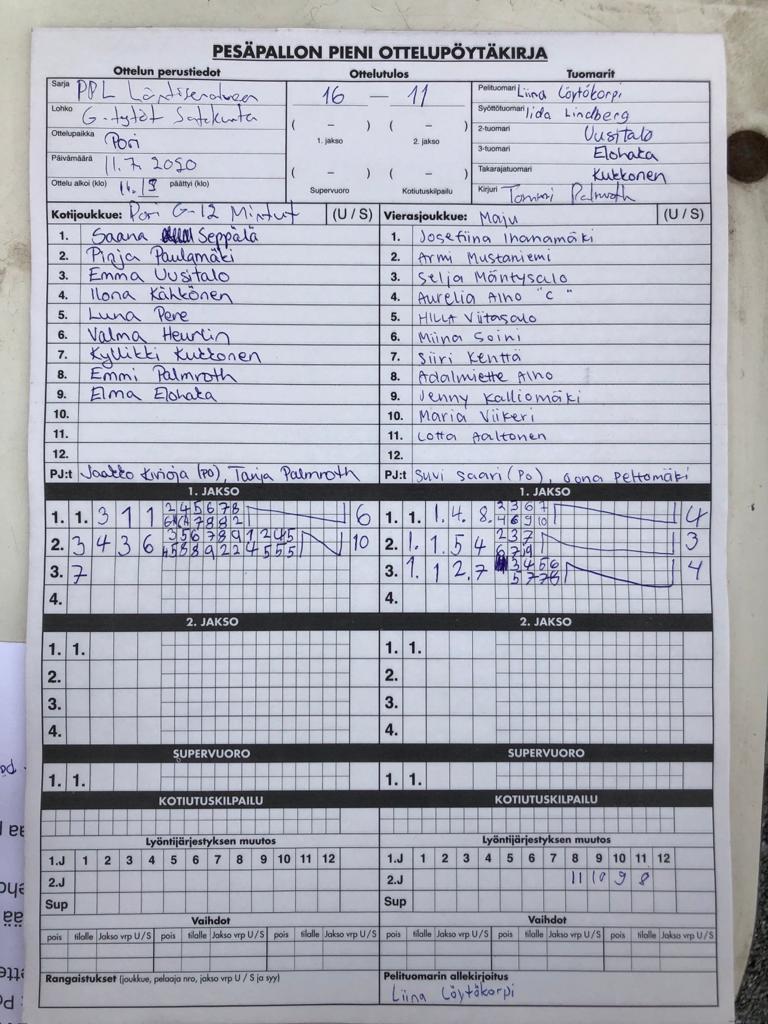 PESÄPALLON PIENI OTTELUPÖYTÄKIRJA
Ottelun perustiedot Ottelutulos Tuomarit
Sarja PPL
Lohko G-tytöt Satakunta
Ottelupaikka Pori
Päivämäärä 11.7.2020
Ottelu alkoi (klo) päättyi (klo)
16 — 11
( – ) ( – )
1. jakso 2. jakso
( – ) ( – )
Supervuoro Kotiutuskilpailu
Pelituomari Liina Löytökorpi
Syöttötuomari Iida Lindberg
2-tuomari Uusitalo
3-tuomari Elohaka
Takarajatuomari Kukkonen
Kirjuri Tommi Palmroth
Kotijoukkue: Pori G-12 Mintut (U / S)
1. Saana Seppälä
2. Pinja Paulamäki
3. Emma Uusitalo
4. Ilona Kähkönen
5. Luna Pere
6. Valma Heurlin
7. Kyllikki Kukkonen
8. Emmi Palmroth
9. Elma Elohaka
10.
11.
12.
PJ:t Jaakko (PO), Tanja Palmroth
Vierasjoukkue: Maju (U / S)
1. Josefiina Ihanamäki
2. Armi Mustaniemi
3. Selja Mäntysalo
4. Aurelia Aino "C"
5. HILLA Viitasalo
6. Miina Soini
7. Siiri Kenttä
8. Adalmiette Aino
9. Jenny Kalliomäki
10. Maria Viikeri
11. Lotta Aaltonen
12.
PJ:t Suvi Saari (PO), Oona Peltomäki
1. JAKSO
1. 1. 3 1 1 2 4 5 6 7 8 6
2. 3 4 3 6 3 5 6 7 8 9 1 2 4 5 10
3. 7
4.
1. JAKSO
1. 1. 1. 4. 8. 2 3 6 7 4
4 6 9 10
2. 1. 1. 5 4 2 3 7 3
3. 1. 1 2. 7 3 4 5 6 4
4.
2. JAKSO
1. 1.
2.
3.
4.
2. JAKSO
1. 1.
2.
3.
4.
SUPERVUORO
1. 1.
SUPERVUORO
1. 1.
KOTIUTUSKILPAILU
KOTIUTUSKILPAILU
Lyöntijärjestyksen muutos
1.J 1 2 3 4 5 6 7 8 9 10 11 12
2.J
Sup
Lyöntijärjestyksen muutos
1.J 1 2 3 4 5 6 7 8 9 10 11 12
2.J 11 10 9 8
Sup
Vaihdot
pois tilalle Jakso vrp U / S pois tilalle Jakso vrp U / S pois tilalle Jakso vrp U / S
Vaihdot
pois tilalle Jakso vrp U / S pois tilalle Jakso vrp U / S pois tilalle Jakso vrp U / S
Rangaistukset (joukkue, pelaaja nro, jakso vrp U / S ja syy)
Pelituomarin allekirjoitus
Liina Löytökorpi